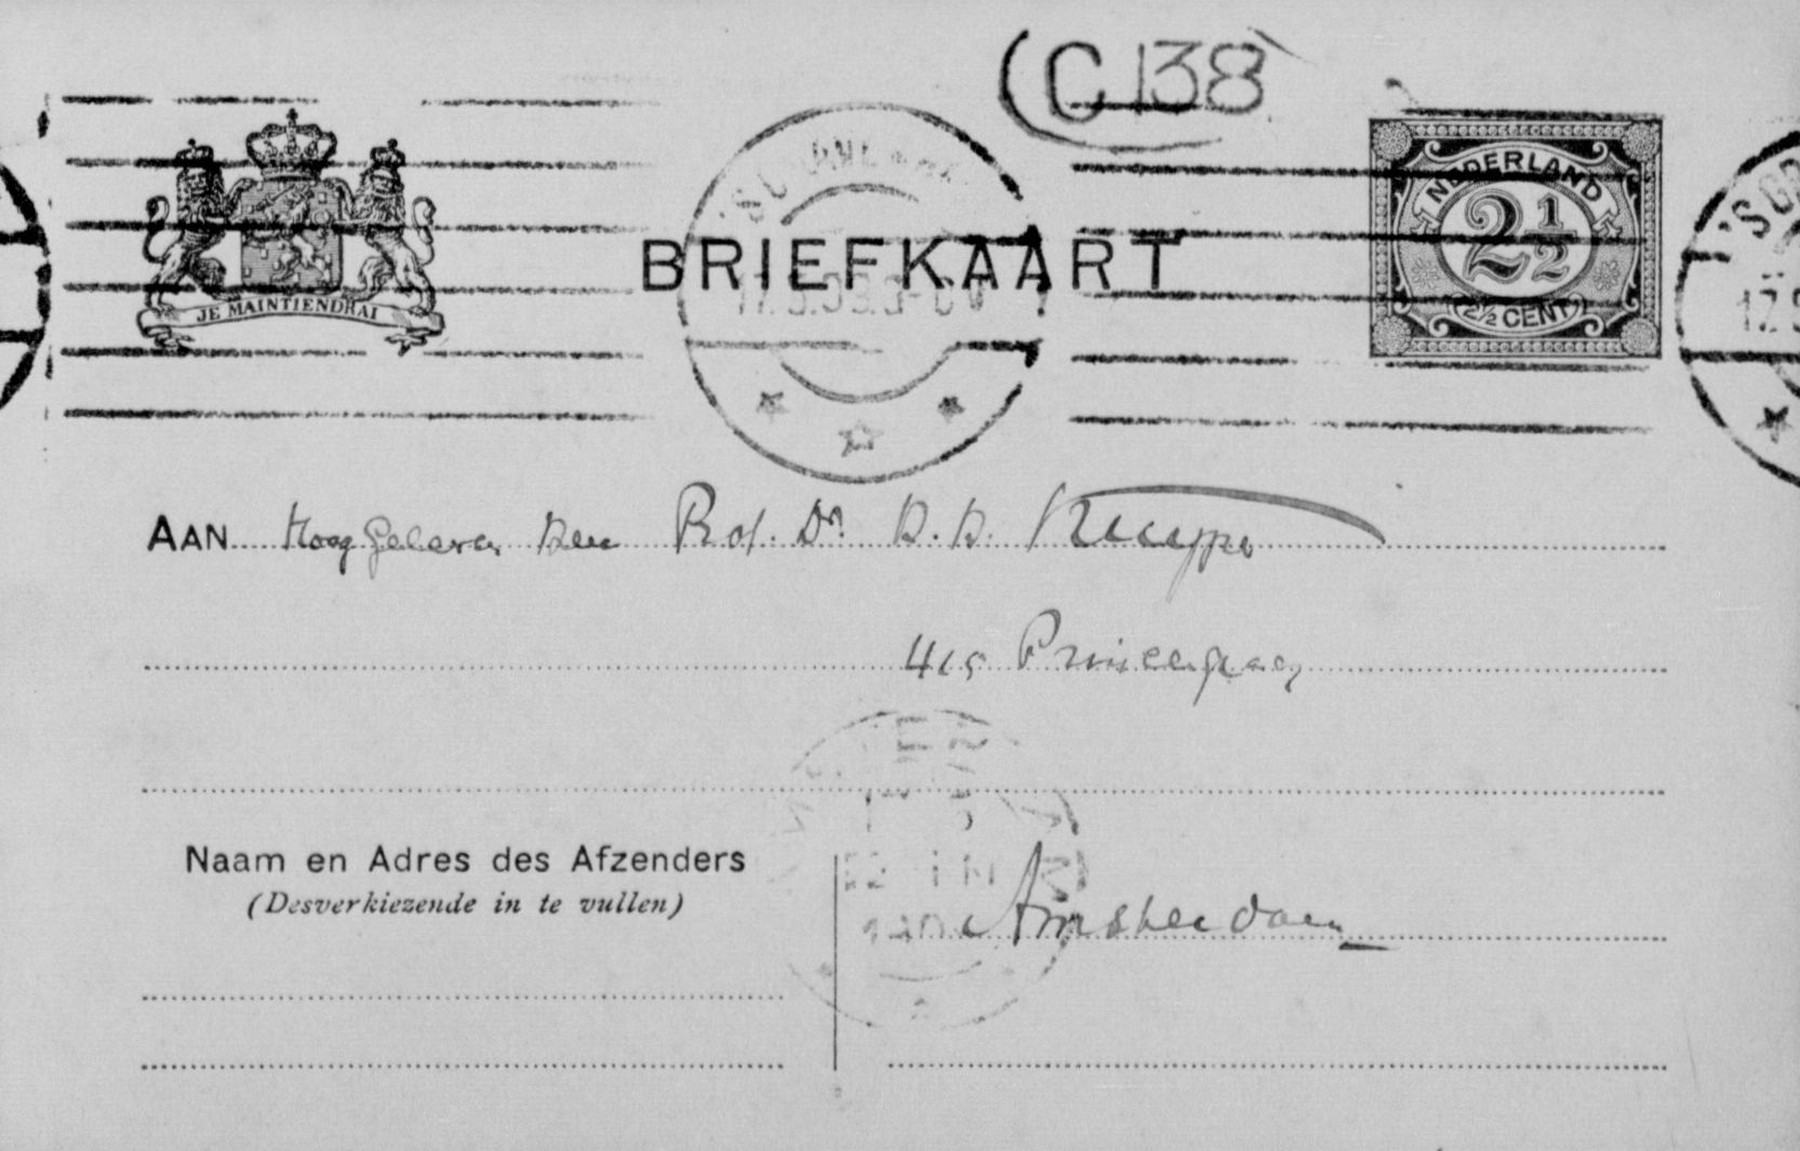 (C 138
JE MAINTIENDRAI
BRIEFKAART
NEDERLAND
2 1/2
2 1/2 CENT
'SGR
AAN HoogGeleerden Heer Prof. Dr. H. H. Kuyper
415 Prinsengracht
Naam en Adres des Afzenders
(Desverkiezende in te vullen)
Amsterdam